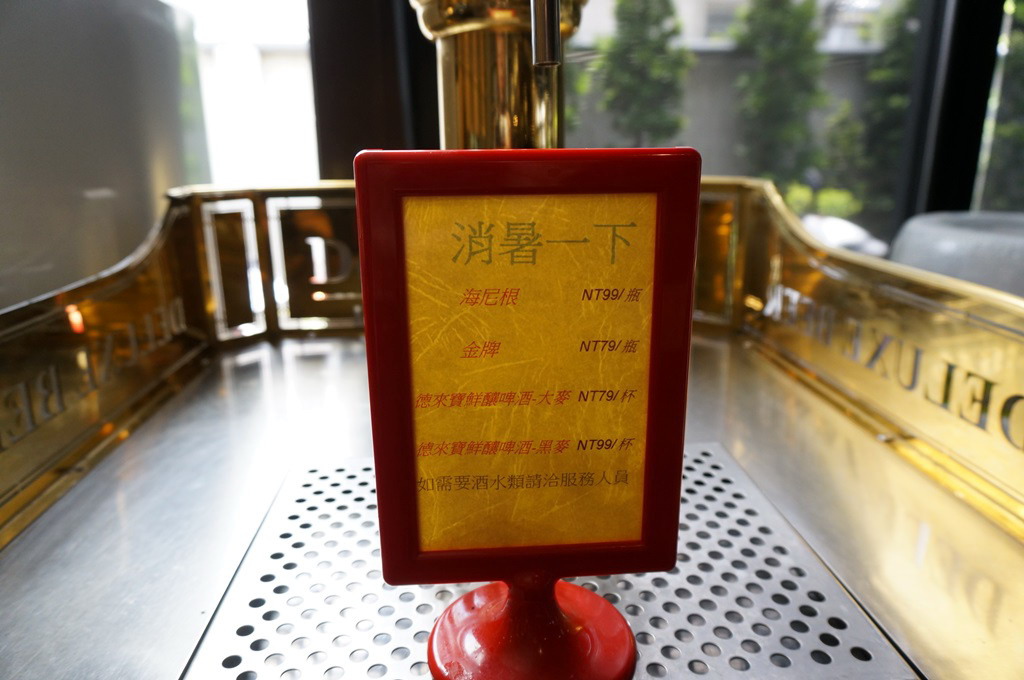 消暑一下
海尼根 NT99/瓶
金牌 NT79/瓶
德來寶鮮釀啤酒-大麥 NT79/杯
德來寶鮮釀啤酒-黑麥 NT99/杯
如需要酒水類請洽服務人員
DELUXE BEER